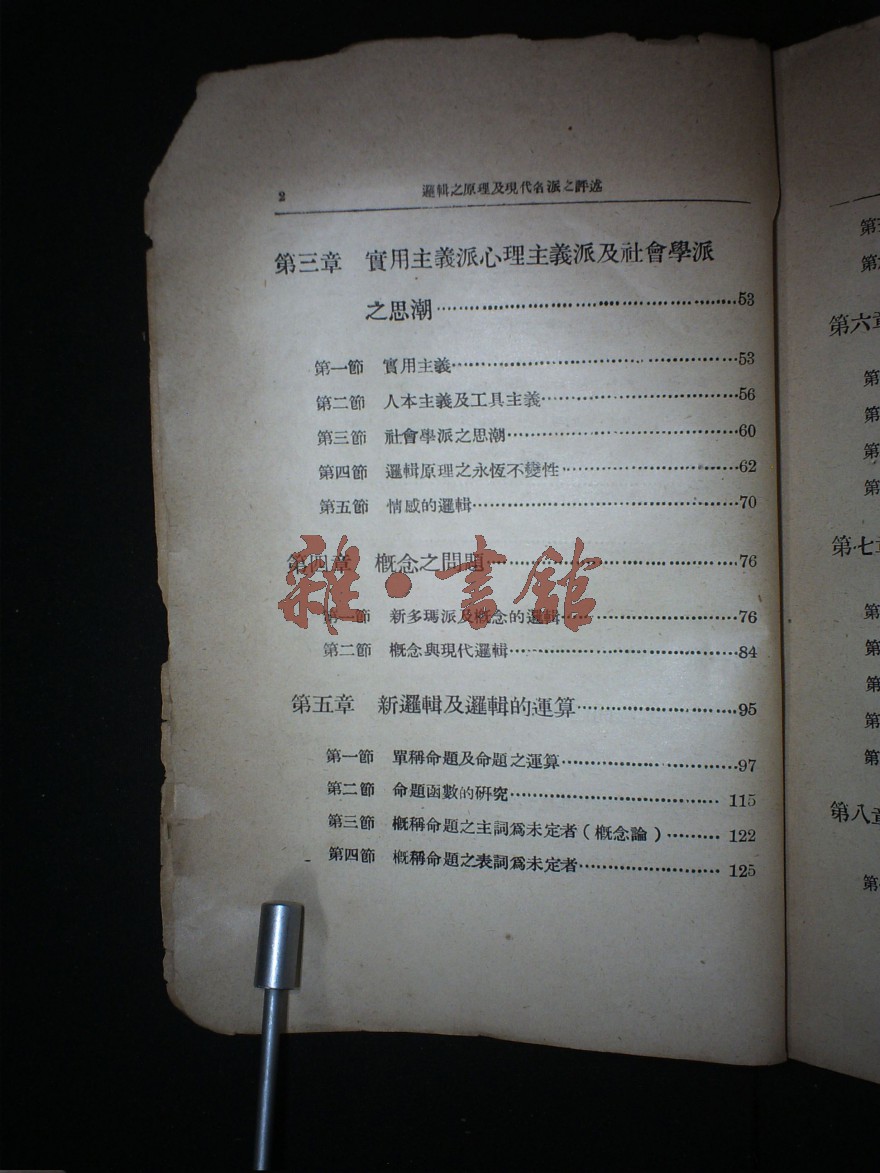 2
邏輯之原理及現代各派之評述
第三章 實用主義派心理主義派及社會學派
之思潮……53
第一節 實用主義……53
第二節 人本主義及工具主義……56
第三節 社會學派之思潮……60
第四節 邏輯原理之永恆不變性……62
第五節 情感的邏輯……70
第四章 概念之問題……76
第一節 新多瑪派及概念的邏輯……76
第二節 概念與現代邏輯……84
第五章 新邏輯及邏輯的運算……95
第一節 單稱命題及命題之運算……97
第二節 命題函數的研究……115
第三節 概稱命題之主詞爲未定者(概念論)……122
第四節 概稱命題之表詞爲未定者……125
雜·書館
第
第
第六章
第
第
第
第
第七章
第
第
第
第
第
第八章
第